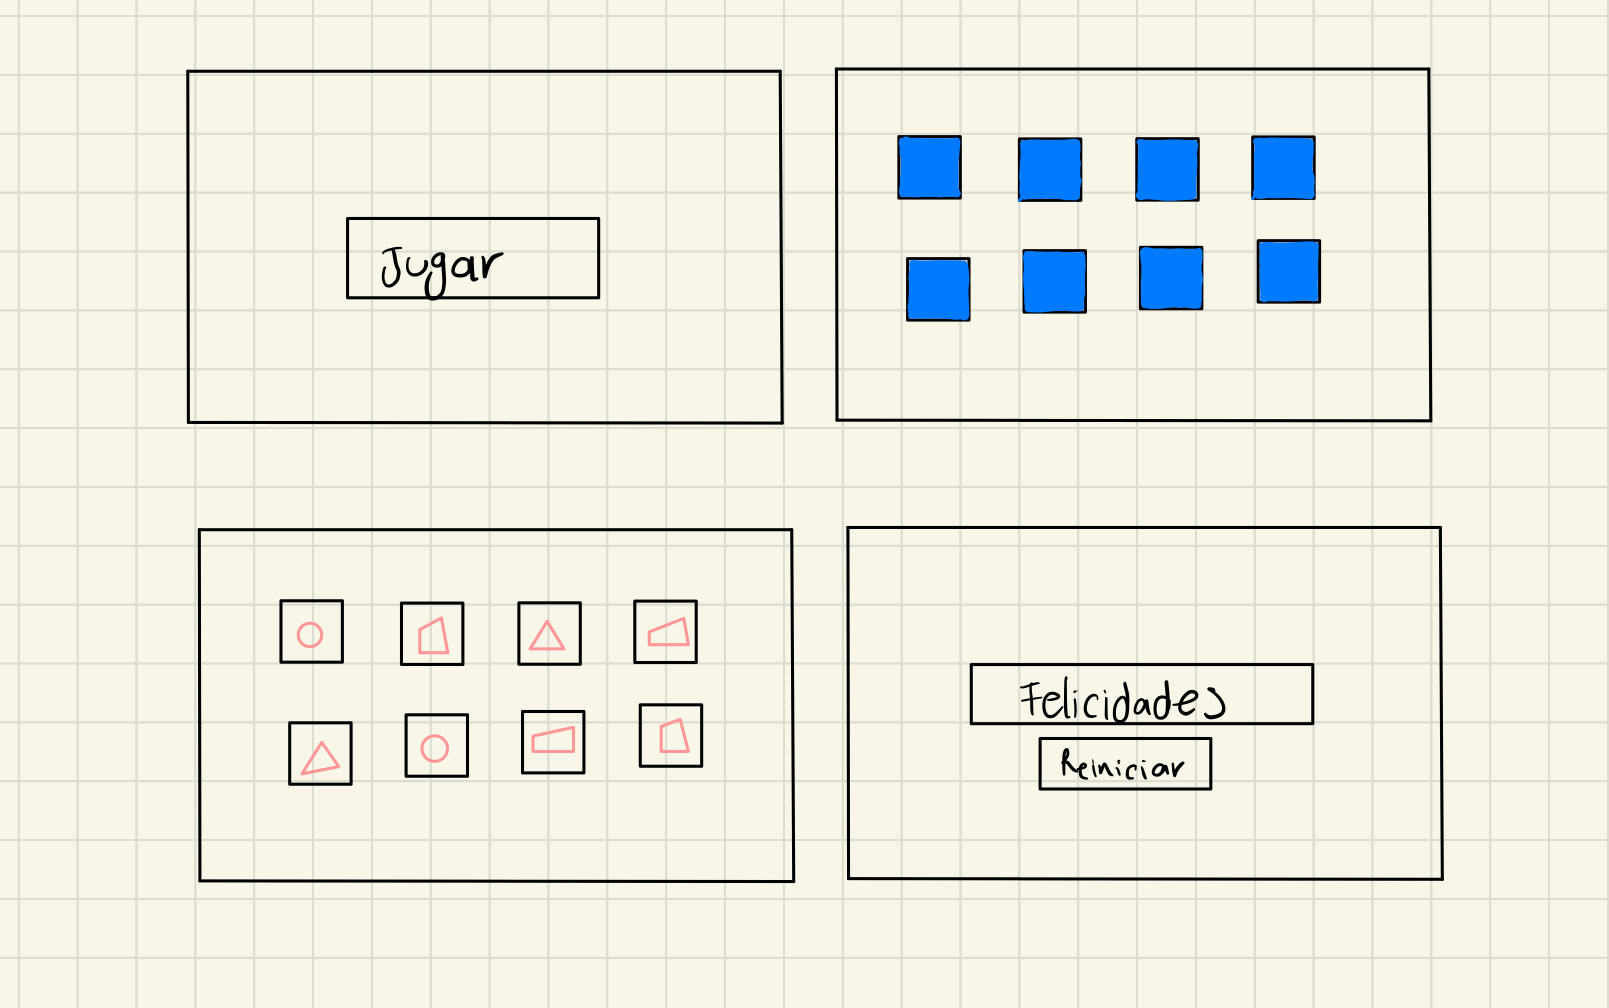 Jugar
Felicidades
Reiniciar